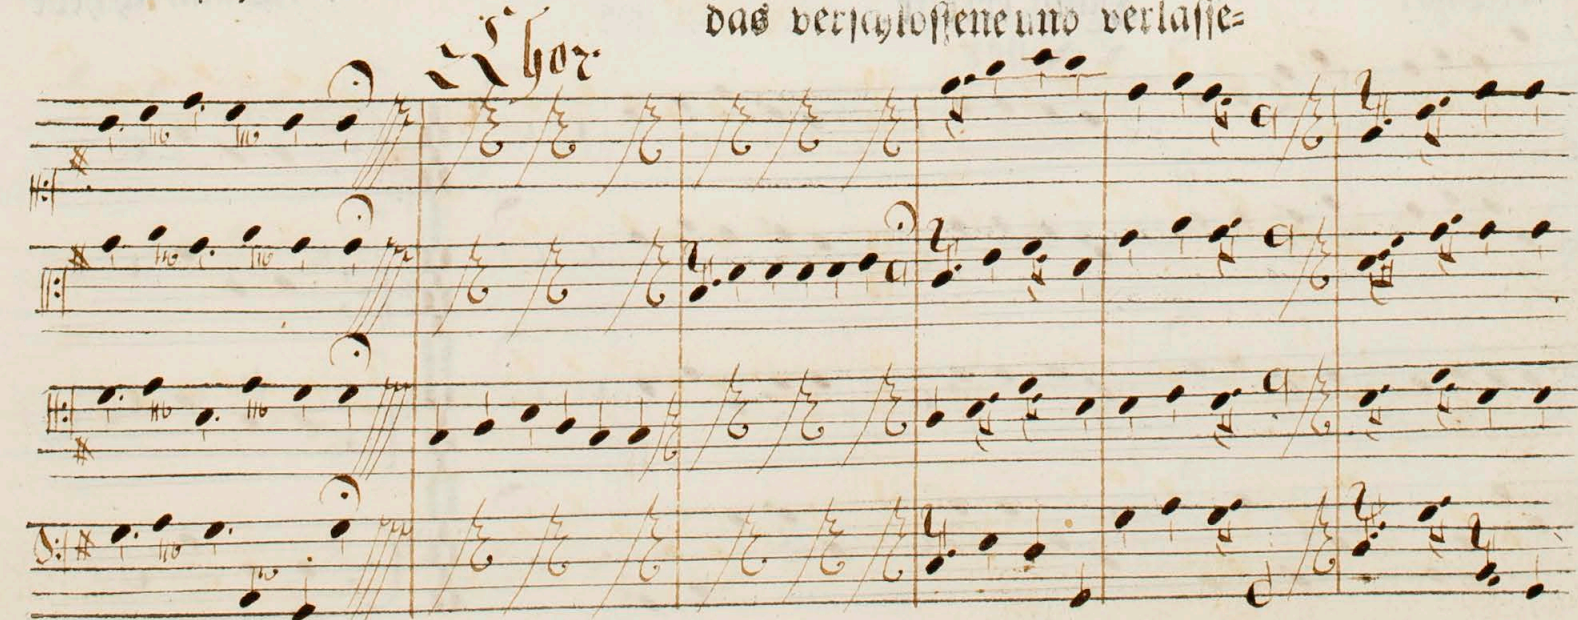 das verschlossene und verlasse=
Chor